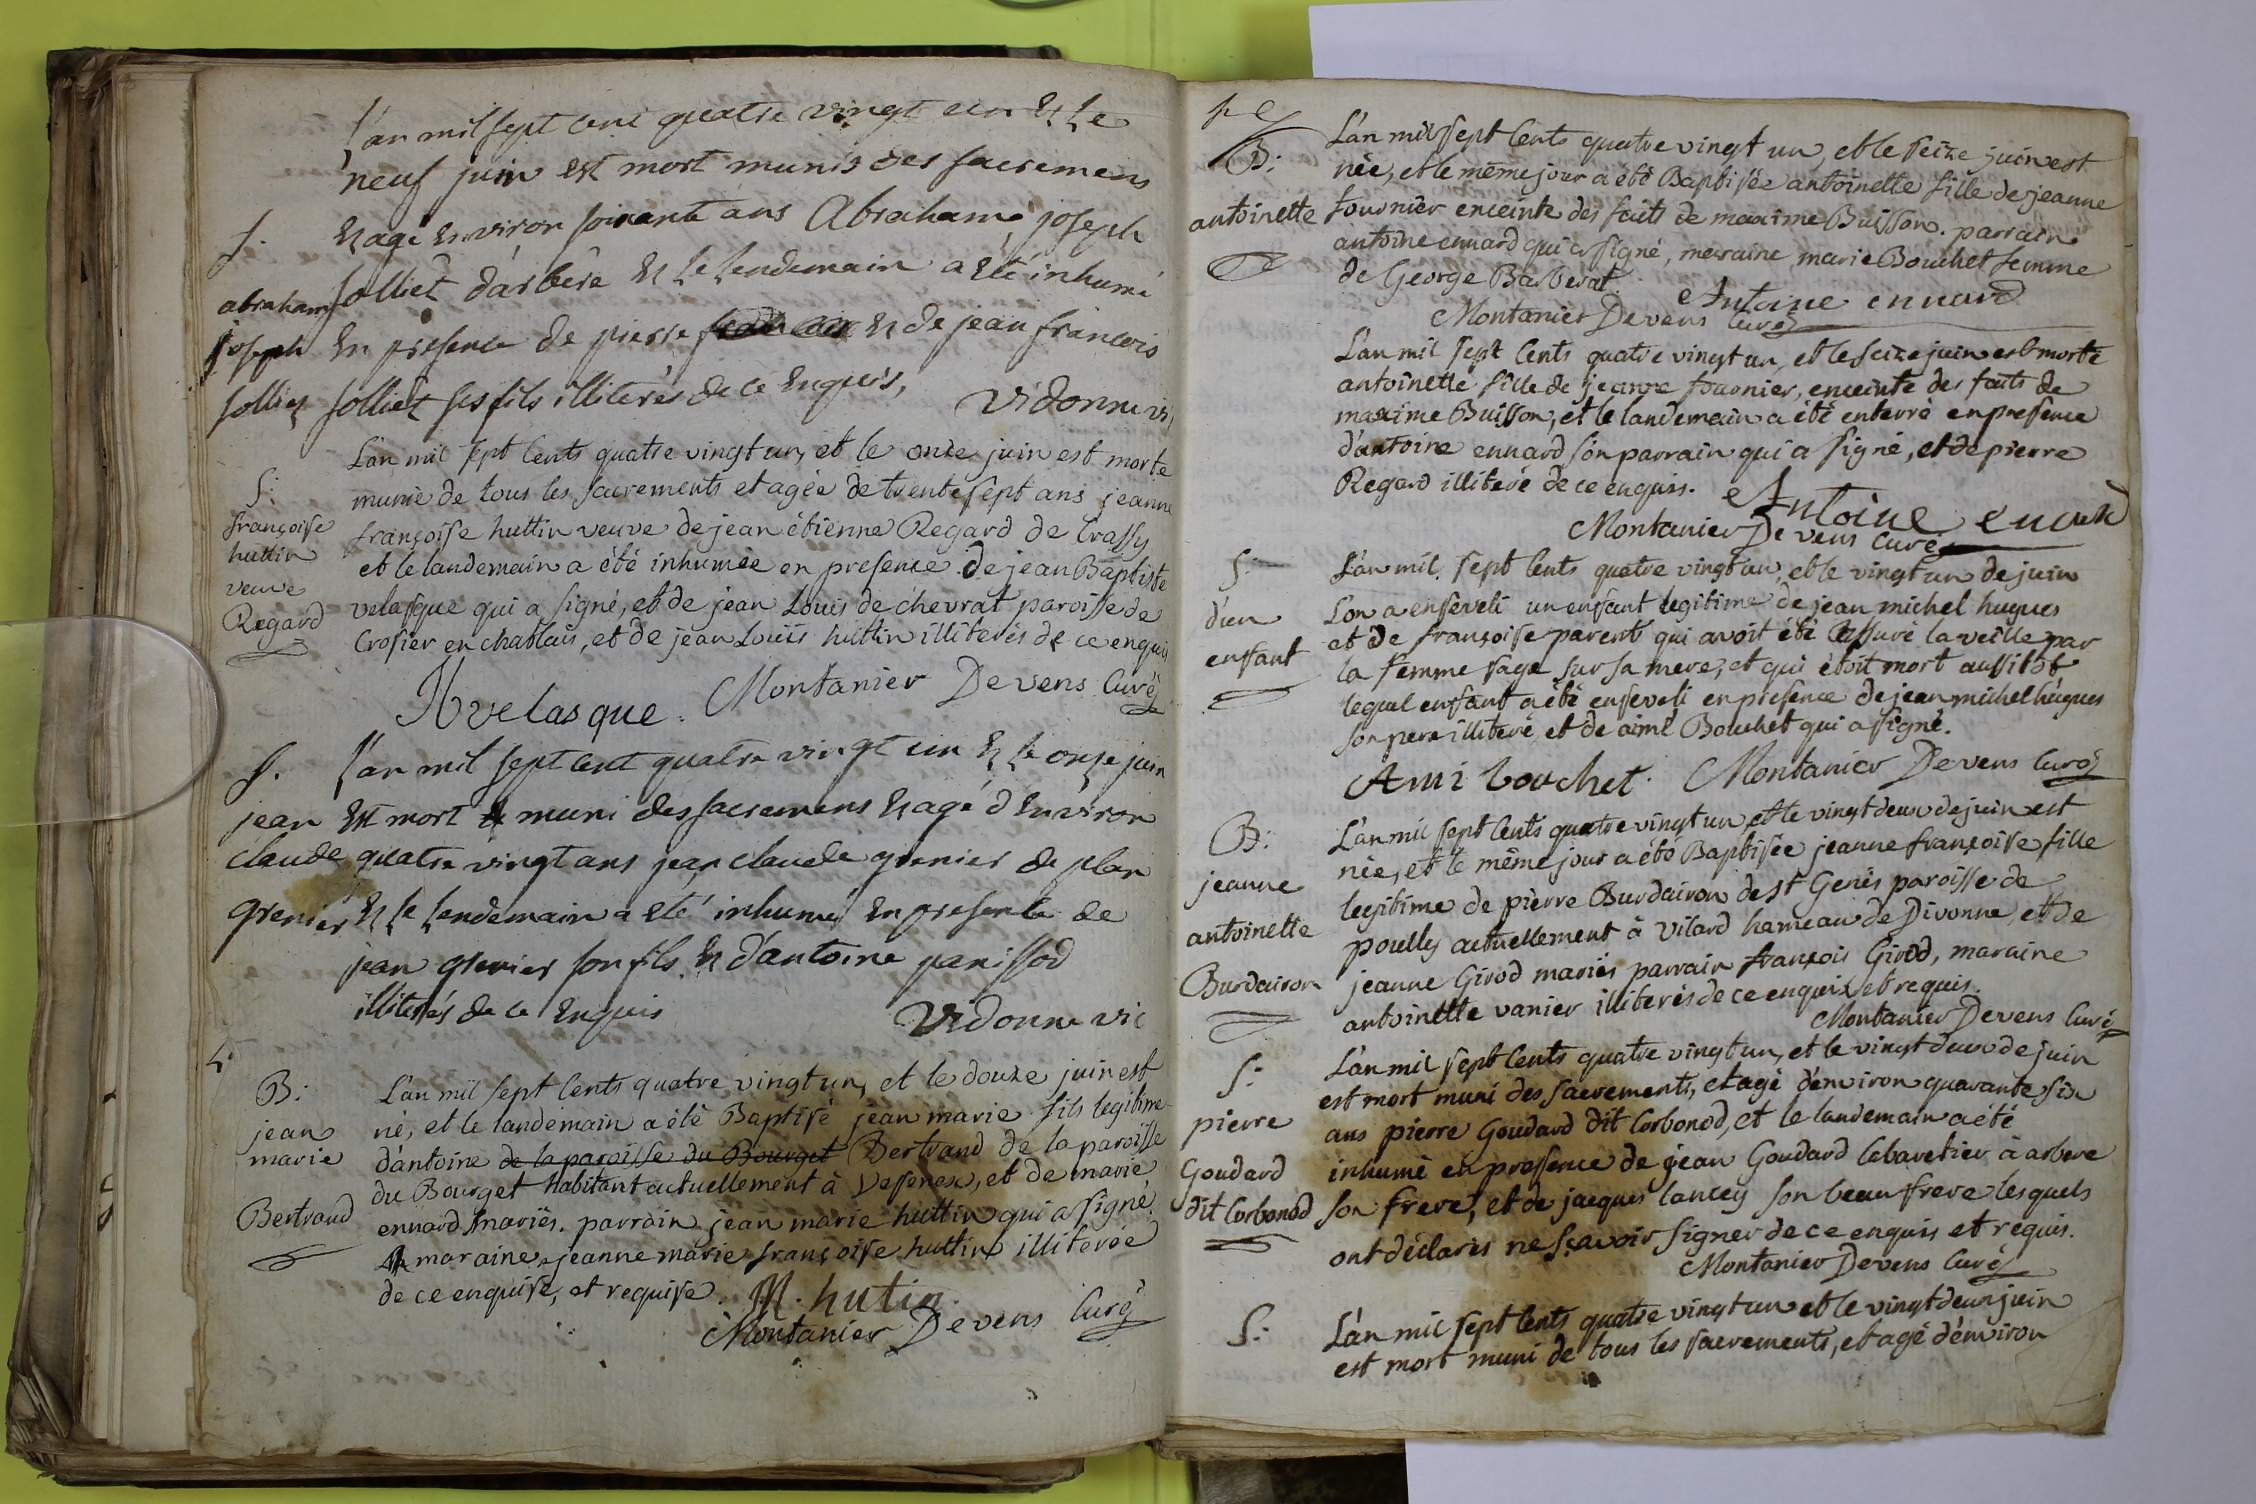 L'an mil sept cent quatre vingt un et le
neuf juin est mort munis des sacremens
S.
et agé environ soixante ans Abraham joseph
abraham
jolliet d'arbère et le lendemain a été inhumé
joseph
en presence de pierre et de jean francois
jolliet
jolliet ses fils illiterés de ce enquis,
Vidonne vic
L'an mil sept cents quatre vingt un, et le onze juin est morte
S:
munie de tous les sacrements et agée de trente sept ans jeanne
françoise
françoise huttin veuve de jean étienne Regard de Crassy
huttin
et le landemain a été inhumée en presence de jean Baptiste
veuve
velasque qui a signé, et de jean Louis de chevrat paroisse de
Regard
Crosier en chablais, et de jean Louis huttin illiterés de ce enquis
Velasque. Montanier Devens Curé
S.
L'an mil sept cent quatre vingt un et le onze juin
jean
est mort muni des sacremens et agé d'environ
claude
quatre vingt ans jean claude grenier de plan
grenier
et le lendemain a été inhumé en presence de
jean grenier son fils et d'antoine panissod
illiterés de ce enquis
Vidonne vic
B:
L'an mil sept cents quatre vingt un, et le douze juin est
jean
né, et le landemain a été Baptisé jean marie fils legitime
marie
d'antoine de la paroisse du Bourget Bertrand de la paroisse
du Bourget habitant actuellement à Vesenex, et de marie
Bertrand
ennard mariés. parrain jean marie huttin qui a signé.
maraine jeanne marie françoise huttin illiterée
de ce enquise, et requise. M. hutin.
Montanier Devens Curé
B:
L'an mil sept cents quatre vingt un, et le seize juin est
née, et le même jour a été Baptisée antoinette fille de jeanne
antoinette
fournier enceinte des faits de maxime Buisson. parrain
antoine ennard qui a signé, maraine marie Bouchet femme
de George Barberat.
Antoine ennard
Montanier Devens Curé
L'an mil sept cents quatre vingt un, et le seize juin est morte
antoinette fille de jeanne fournier, enceinte des faits de
maxime Buisson, et le landemain a été enterré en presence
d'antoine ennard son parrain qui a signé, et de pierre
Regard illiteré de ce enquis.
Antoine ennard
Montanier Devens Curé
S:
L'an mil sept cents quatre vingt un, et le vingt un de juin
d'un
L'on a enseveli un enfant legitime de jean michel hugues
enfant
et de françoise parents qui avoit été assuré la veille par
la femme sage sur sa mere, et qui étoit mort aussitôt
lequel enfant a été enseveli en presence de jean michel hugues
son pere illiteré et de aimé Bouchet qui a signé.
Ami bouchet. Montanier Devens Curé
B:
L'an mil sept cents quatre vingt un et le vingt deux de juin est
née, et le même jour a été Baptisée jeanne françoise fille
jeanne
legitime de pierre Burdairon de st Genis paroisse de
antoinette
pouilly actuellement à Vilard hameau de Divonne, et de
Burdairon
jeanne Girod mariés parrain françois Girod, maraine
antoinette vanier illiterés de ce enquis, et requis.
Montanier Devens Curé
S:
L'an mil sept cents quatre vingt un, et le vingt deux de juin
est mort muni des sacrements, et agé d'environ quarante six
pierre
ans pierre Goudard dit Corbonod, et le landemain a été
Goudard
inhumé en presence de jean Goudard Cabaretier à arbere
dit Corbonod
son frere, et de jacques lancey son beau frere lesquels
ont déclarés ne sçavoir signer de ce enquis et requis.
Montanier Devens Curé
S:
L'an mil sept cents quatre vingt un et le vingt deux juin
est mort muni de tous les sacrements, et agé d'environ